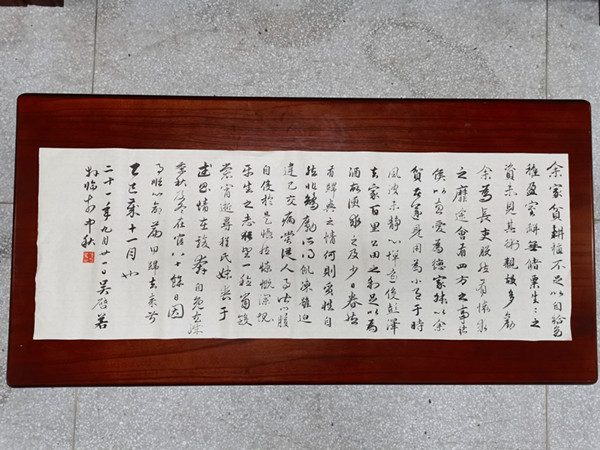 余家貧耕植不足以自給幼
稚盈室缾無儲粟生生之
資未見其術親故多勸
余為長吏脱然有懷求
之靡途會有四方之事諸
侯以惠愛為德家叔以余
貧苦遂見用為小邑于時
風波未靜心憚遠役彭澤
去家百里公田之利足以為
酒故便求之及少日眷然
有歸與之情何則質性自
然非矯厲所得飢凍雖迫
違己交病嘗從人事皆口腹
自役於是悵然慷慨深愧
平生之志猶望一稔當斂
裳宵逝尋程氏妹喪于
情在駿奔自免去職
仲秋至冬在官八十餘日因
事順心命篇曰歸去來兮
乙巳歲十一月也
二十一年九月廿一日吳啓若
臨中秋